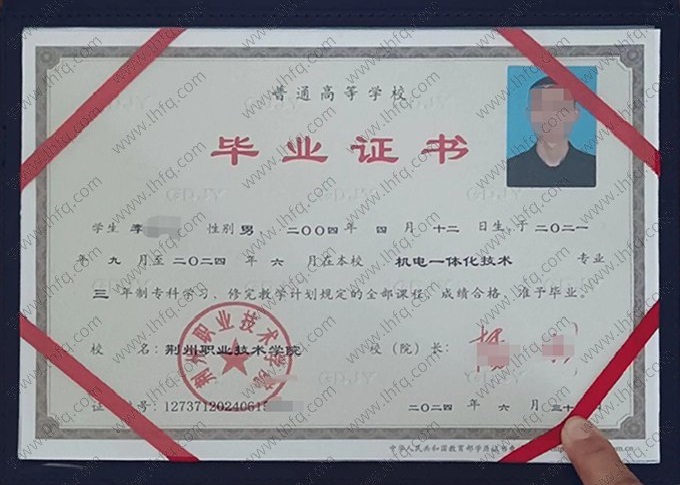 普通高等学校
毕业证书
学生 李 性别 男 、二〇〇四年 四 月 十二 日生,于二〇二一
年 九 月至二〇二四年 六 月在本校 机电一体化技术 专业
三 年制专科学习,修完教学计划规定的全部课程,成绩合格,准予毕业。
校 名:荆州职业技术学院 校(院)长:
荆州职业技术学院
证 号:12737120240615 二〇二四 年 六 月
中华人民共和国教育部学历证书查
www.lhfq.com
GDJY